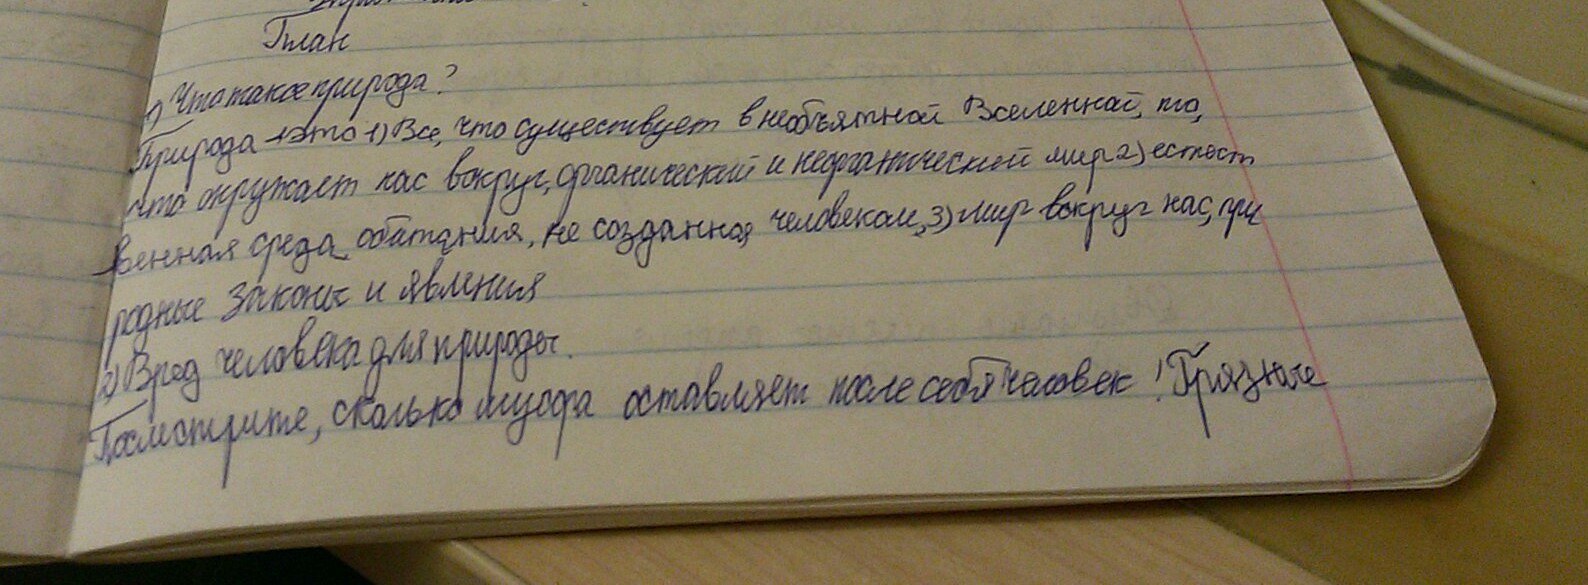 План
1) Что такое природа?
Природа - это 1) Все, что существует в необъятной Вселенной, то,
что окружает нас вокруг, органический и неорганический мир 2) естест
венная среда обитания, не созданная человеком, 3) мир вокруг нас, при
родные законы и явления
2) Вред человека для природы.
Посмотрите, сколько мусора оставляет после себя человек! Грязные